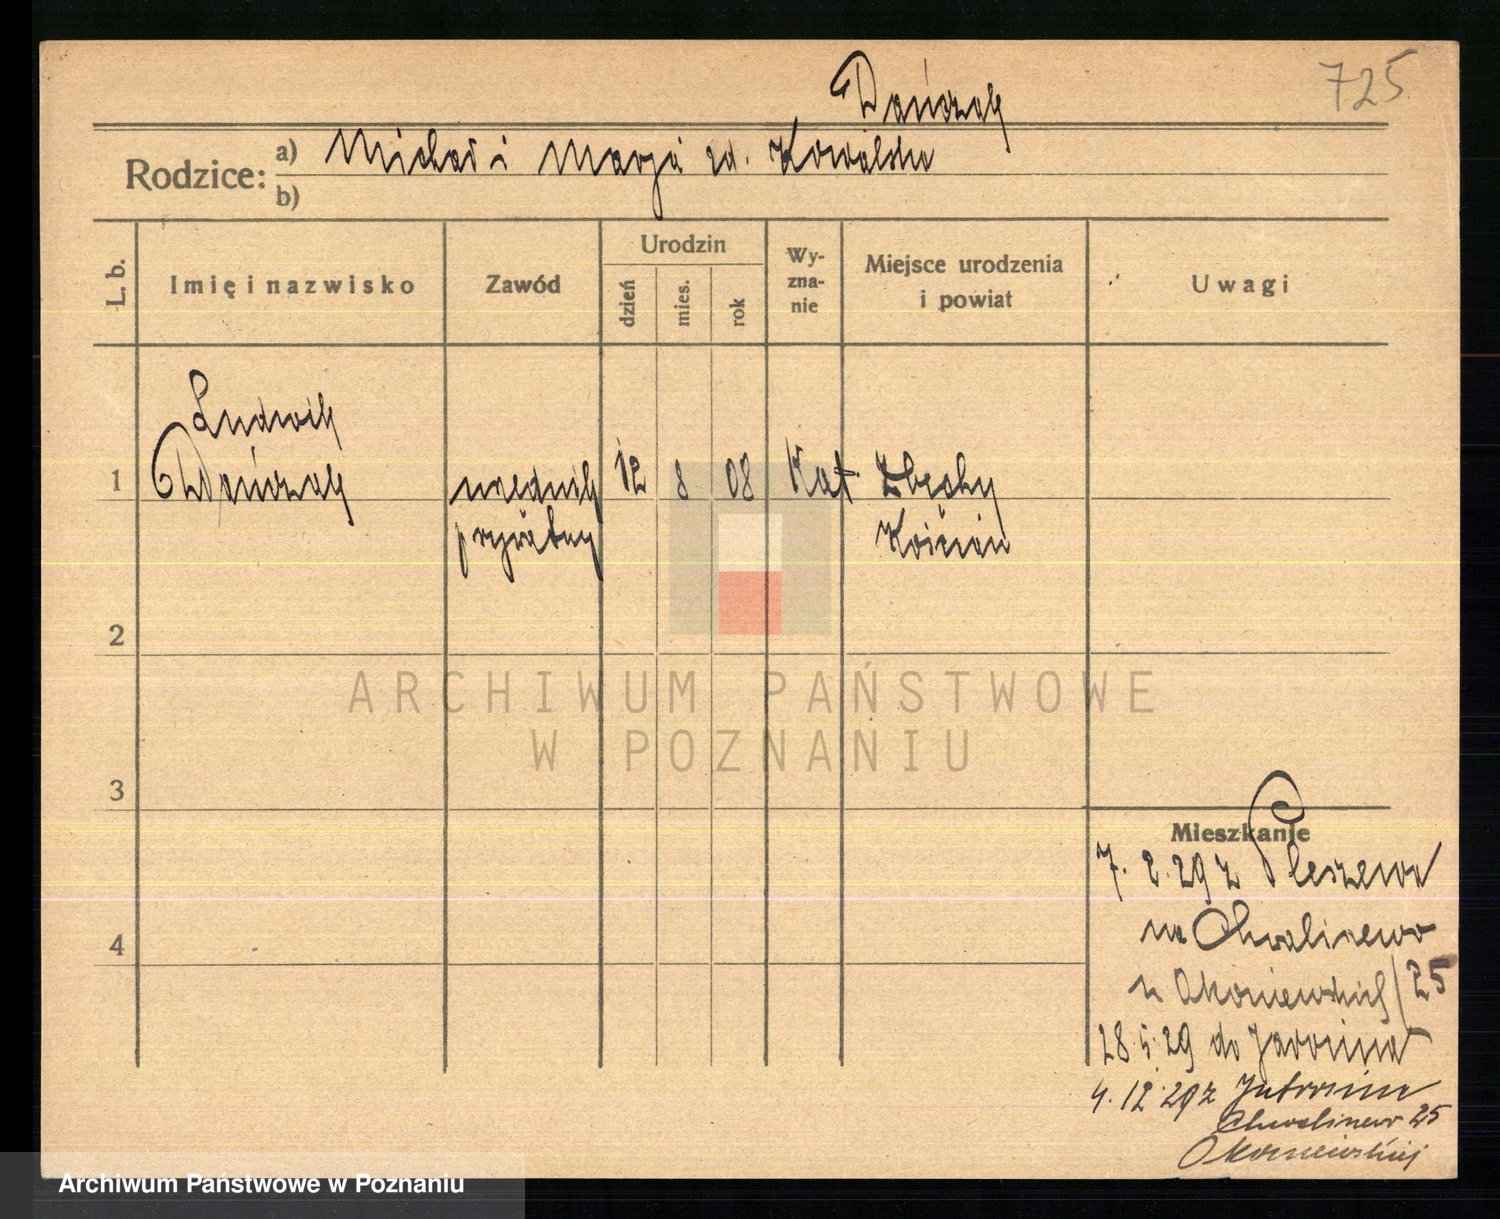 725
Dańczak
Rodzice: a) Michał i Marja zd. Kowalska
b)
L. b. Imię i nazwisko Zawód Urodzin dzień mies. rok Wyznanie Miejsce urodzenia i powiat Uwagi
Ludwik
1 Dańczak urzędnik 12 8 08 Kat Zbęchy
prywatny Kościan
2
ARCHIWUM PAŃSTWOWE
W POZNANIU
3
Mieszkanie
7. 2. 29 z Pleszewa
na Chwaliszewo
u Okoniewskich / 25
28. 5. 29 do Jarocina
4. 12. 29 z Jutrosin
Chwaliszewo 25
Okoniewskiej
4
Archiwum Państwowe w Poznaniu